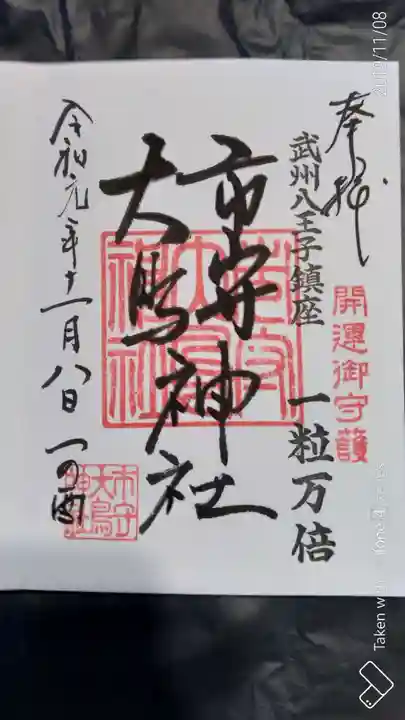 奉拝
開運御守護
武州八王子鎮座
一粒万倍
市守
大鳥神社
令和元年十一月八日 一の酉
市守
大鳥
神社
2019/11/08
Taken w